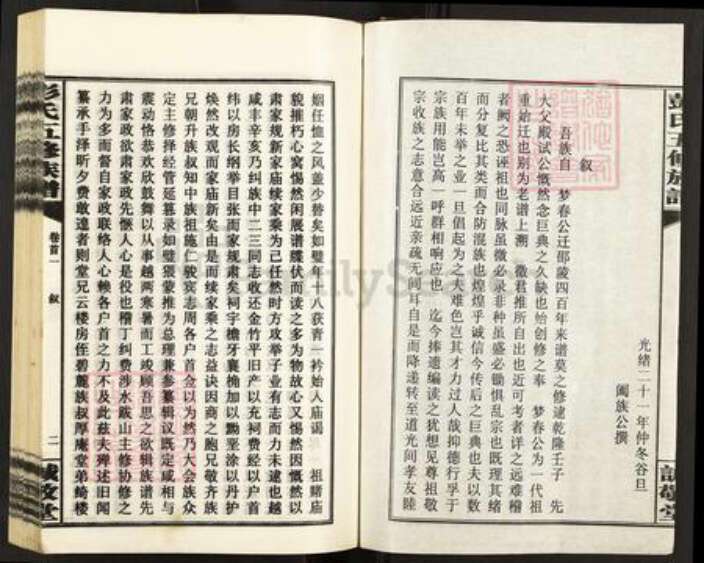 彭氏五修族譜
誠敬堂
光绪二十一年仲冬谷旦
阖族公撰
叙
吾族自 梦春公迁邵陵四百年来谱莫之修逮乾隆壬子 先
大父殿试公慨然念巨典之久缺也始创修之奉 梦春公为一代祖
重始迁也别为老谱上溯 徵君推所自出也近可考者详之远难稽
者阙之恐诬祖也同脉虽微必录非种虽盛必锄惧乱宗也既理其绪
而分复比其类而合防混族也煌煌乎诚信今传后之巨典也夫以数
百年未举之业一旦倡起为之夫难色岂其才力过人哉抑德行孚于
宗族用能岂高一呼群相响应也 迄今捧遗编读之犹想见尊祖敬
宗收族之志意合远近亲疏无间耳自是而降递转至道光间孝友睦
姻任恤之风盖少替矣如璧年十八获青一衿始入庙谒 祖睹庙
貌摧朽心窝惕然闲展谱牒伏而读之多为物故心又惕然因慨然以
肃家规新家庙续家乘为己任然时方攻举子业有志而力未逮也越
咸丰辛亥乃纠族中二三同志收还金竹平旧产以充祠费经以户首
纬以房长纲举目张而家规肃矣祠宇檐牙襄桷加以黝垩涂以丹护
焕然改观而家庙新矣由是而续家乘之志益诀因商之胞兄敬齐族
兄朝升族叔知中族祖施仁骏宾志周各户首金以为然乃大会族众
定主修择经管延誊录如璧猥蒙推为总理兼参纂辑议既定咸相与
震动恪恭欢欣鼓舞以从事越两寒暑而工竣顾吾思之欲辑族谱先
肃家政欲肃家政先惬人心是役也稽丁纠费涉水跋山主修协修之
力为多而督自家政联络人心赖各户首之力不及此兹夫殚述旧闻
纂承手泽昕夕费敢遑者则堂兄云楼房侄碧麓族叔厚庵堂弟绮楼
彭氏五修族譜
卷首一
叙
二
誠敬堂